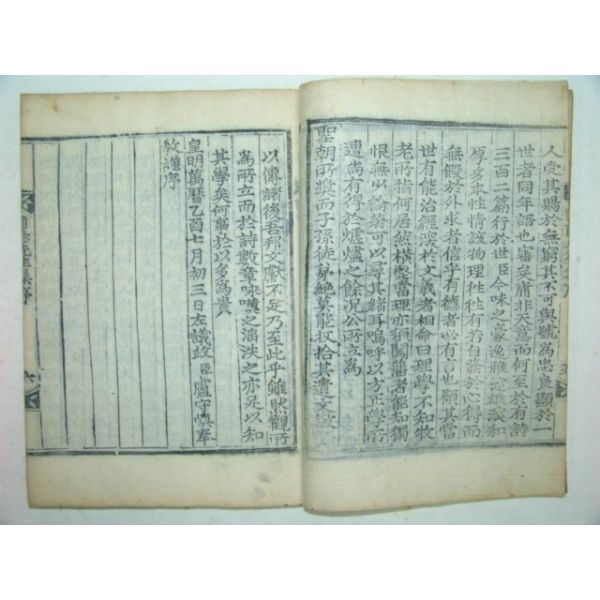 人受其賜於無窮其不可與號為忠良顯於一
世者同年語也審矣庸非天意而何至於有詩
三百二篇行於世臣今味之豪逸雅健雄深和
厚多本性情該物理往往有若自孩於心得而
無假於外求者信乎有德者必有言也顧其當
世有能治經深於文義者相命曰理學不知牧
老所指何居然橫竪當理亦須聞諸者能知獨
恨無此論榮可以尋其緒耳嗚呼以方正學所
遭尚有得於煨爐之餘況公所立為
聖朝所奬而子孫徒弟絶莫能收拾其遺文數
以傳諸後吾邦文獻不足乃至此乎雖然觀所
為所立而於詩數章味嘆之滛泆之亦足以知
其學矣何事於以多為貴
皇明萬曆乙酉七月初三日左議政臣盧守愼奉
敎謹序
圃隱先生集序 六